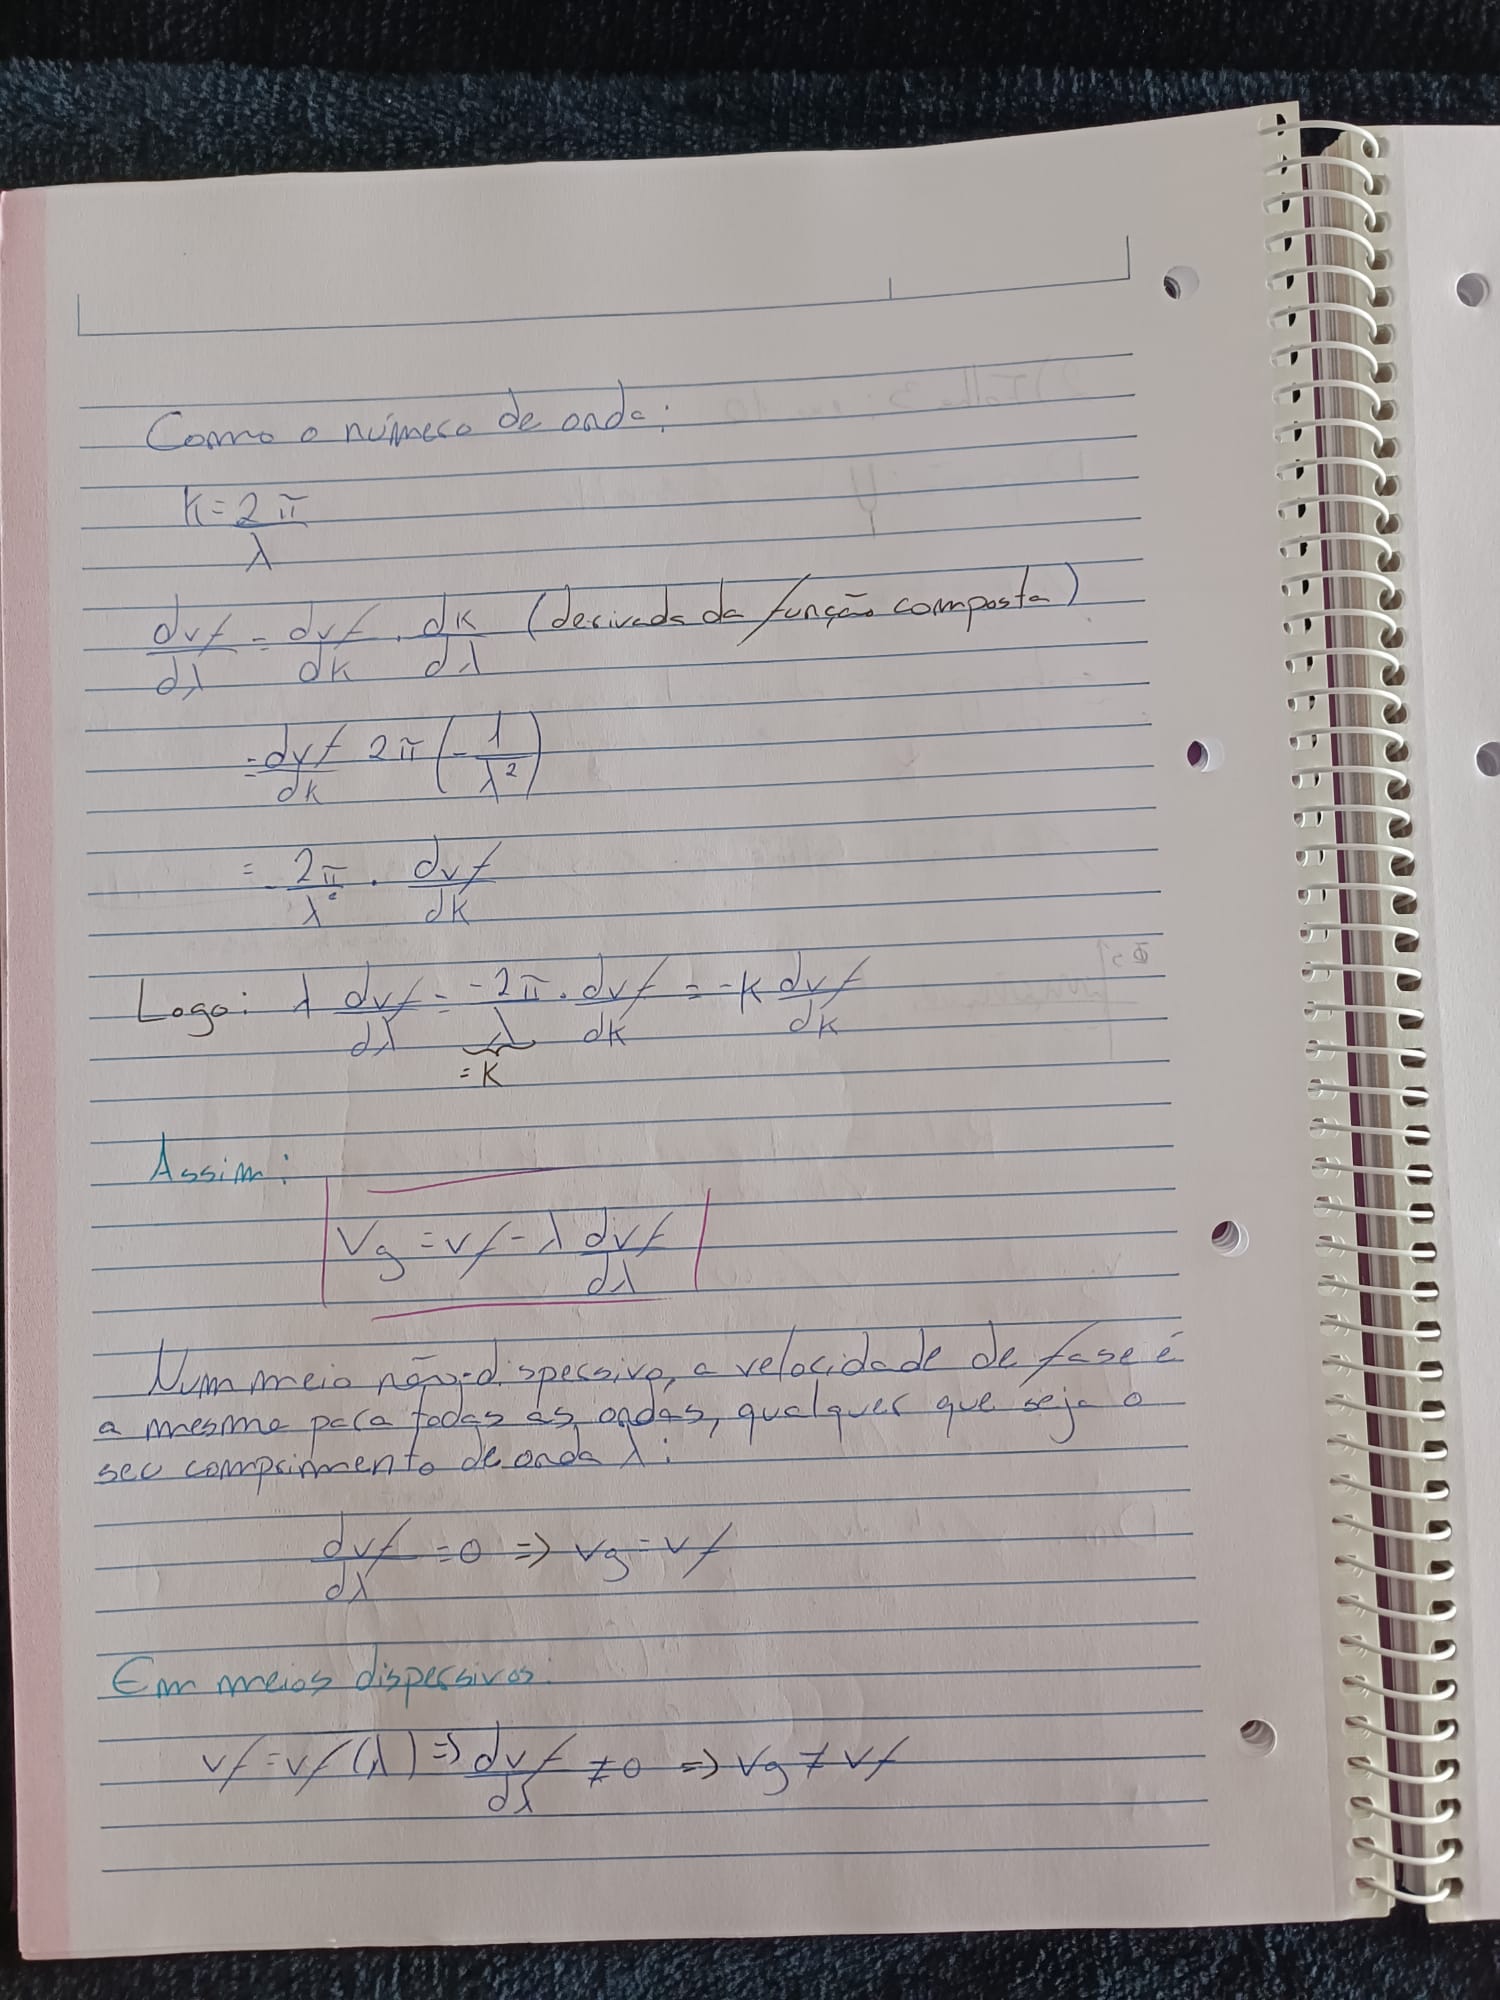 Como o número de onda:
k = 2π/λ
dvf/dλ = dvf/dk · dk/dλ (derivada da função composta)
= dvf/dk 2π (-1/λ²)
= -2π/λ² · dvf/dk
Logo: λ dvf/dλ = -2π/λ · dvf/dk = -k dvf/dk
= k
Assim:
Vg = vf - λ dvf/dλ
Num meio não-dispersivo, a velocidade de fase é
a mesma para todas as ondas, qualquer que seja o
seu comprimento de onda λ:
dvf/dλ = 0 => vg = vf
Em meios dispersivos:
vf = vf(λ) => dvf/dλ ≠ 0 => vg ≠ vf